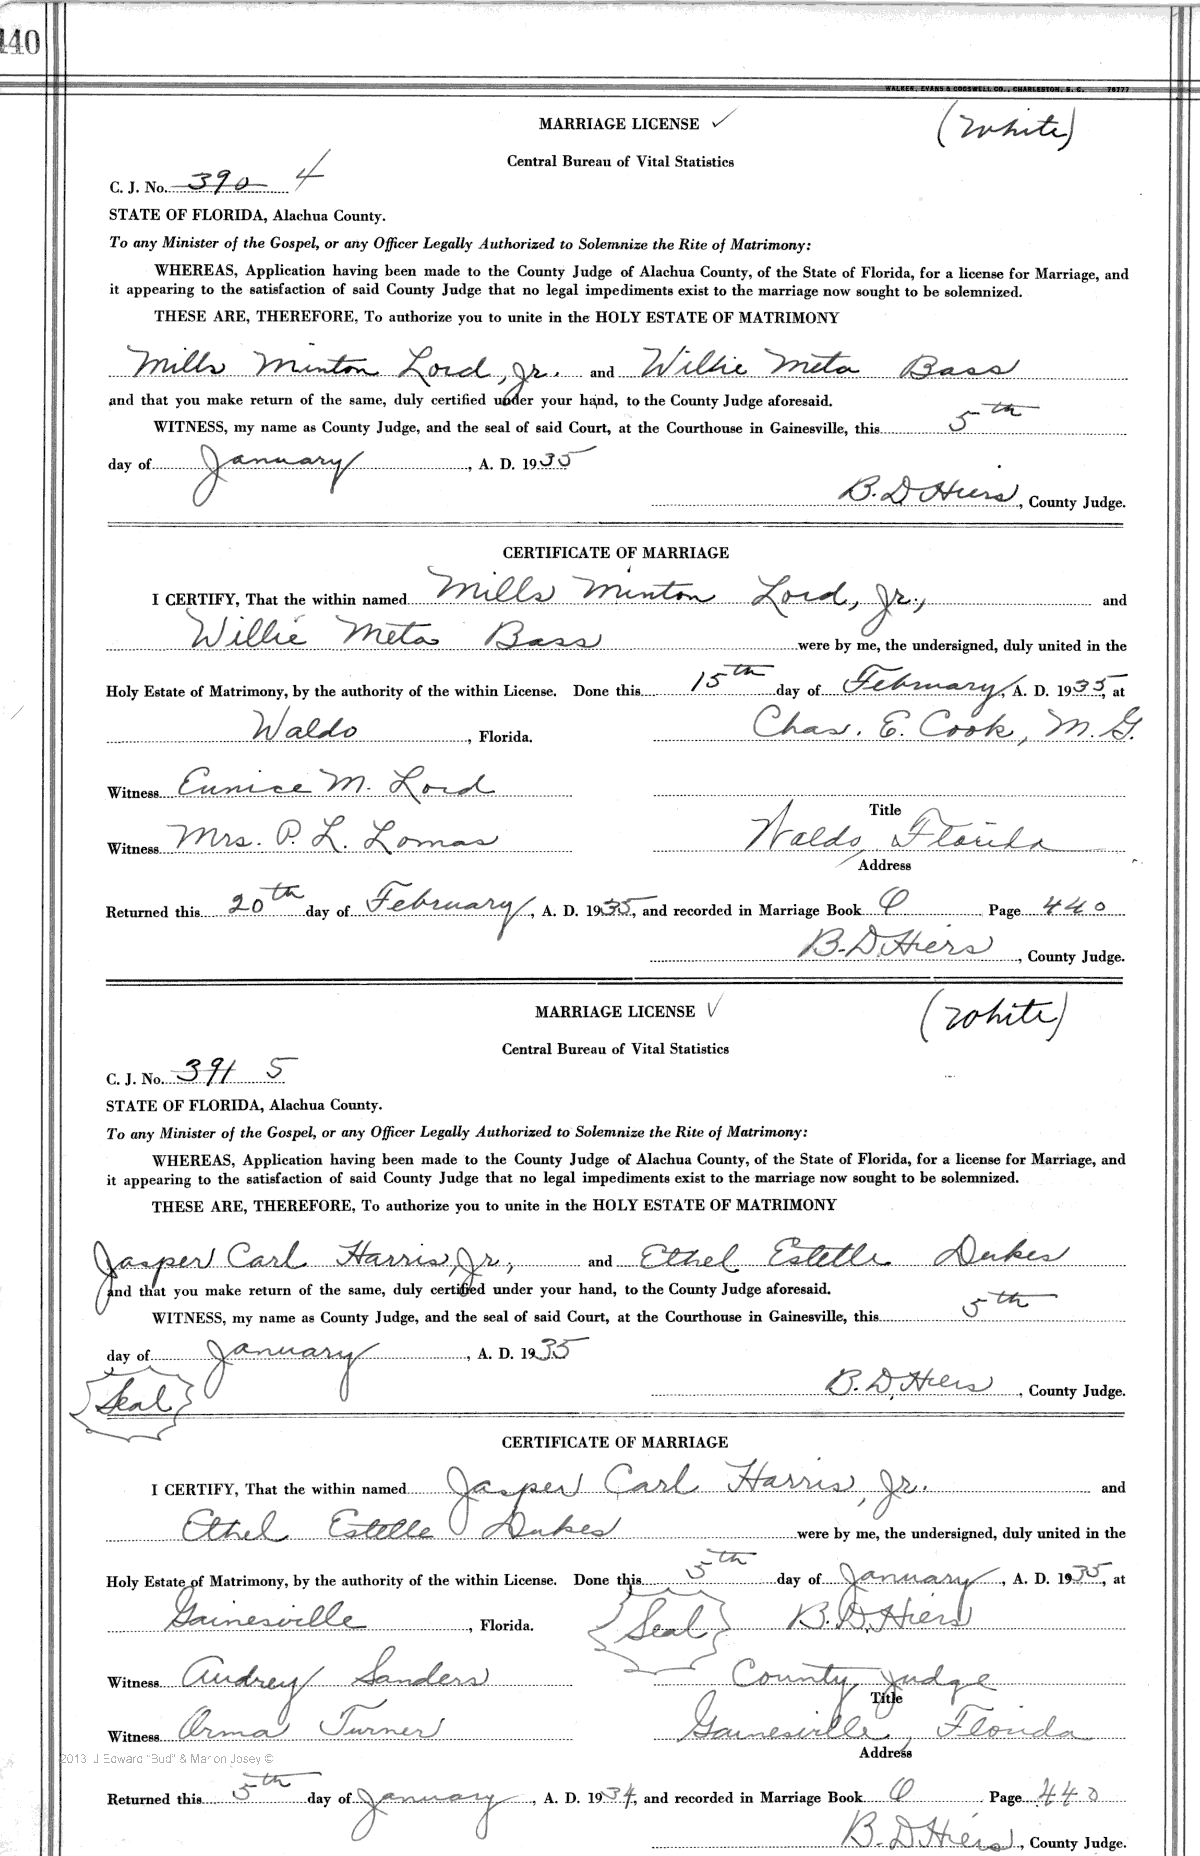 440
WALKER, EVANS & COGSWELL CO., CHARLESTON, S. C. 76777
MARRIAGE LICENSE ✓ (White)
Central Bureau of Vital Statistics
C. J. No. 390 4
STATE OF FLORIDA, Alachua County.
To any Minister of the Gospel, or any Officer Legally Authorized to Solemnize the Rite of Matrimony:
WHEREAS, Application having been made to the County Judge of Alachua County, of the State of Florida, for a license for Marriage, and
it appearing to the satisfaction of said County Judge that no legal impediments exist to the marriage now sought to be solemnized.
THESE ARE, THEREFORE, To authorize you to unite in the HOLY ESTATE OF MATRIMONY
Mills Minton Lord, Jr. and Willie Meta Bass
and that you make return of the same, duly certified under your hand, to the County Judge aforesaid.
WITNESS, my name as County Judge, and the seal of said Court, at the Courthouse in Gainesville, this 5th
day of January, A. D. 1935
B. D. Hiers, County Judge.
CERTIFICATE OF MARRIAGE
I CERTIFY, That the within named Mills Minton Lord, Jr., and
Willie Meta Bass were by me, the undersigned, duly united in the
Holy Estate of Matrimony, by the authority of the within License. Done this 15th day of February, A. D. 1935, at
Waldo, Florida. Chas. E. Cook, M. G.
Witness Eunice M. Lord
Title
Witness Mrs. P. L. Lomas Waldo, Florida
Address
Returned this 20th day of February, A. D. 1935, and recorded in Marriage Book O Page 440
B. D. Hiers, County Judge.
MARRIAGE LICENSE ✓ (White)
Central Bureau of Vital Statistics
C. J. No. 391 5
STATE OF FLORIDA, Alachua County.
To any Minister of the Gospel, or any Officer Legally Authorized to Solemnize the Rite of Matrimony:
WHEREAS, Application having been made to the County Judge of Alachua County, of the State of Florida, for a license for Marriage, and
it appearing to the satisfaction of said County Judge that no legal impediments exist to the marriage now sought to be solemnized.
THESE ARE, THEREFORE, To authorize you to unite in the HOLY ESTATE OF MATRIMONY
Jasper Carl Harris, Jr., and Ethel Estelle Dukes
and that you make return of the same, duly certified under your hand, to the County Judge aforesaid.
WITNESS, my name as County Judge, and the seal of said Court, at the Courthouse in Gainesville, this 5th
day of January, A. D. 1935
Seal B. D. Hiers, County Judge.
CERTIFICATE OF MARRIAGE
I CERTIFY, That the within named Jasper Carl Harris, Jr. and
Ethel Estelle Dukes were by me, the undersigned, duly united in the
Holy Estate of Matrimony, by the authority of the within License. Done this 5th day of January, A. D. 1935, at
Gainesville, Florida. Seal B. D. Hiers
Witness Audrey Sanders County Judge
Title
Witness Orma Turner Gainesville, Florida
Address
2013 J Edward "Bud" & Marion Josey ©
Returned this 5th day of January, A. D. 1934, and recorded in Marriage Book O Page 440
B. D. Hiers, County Judge.